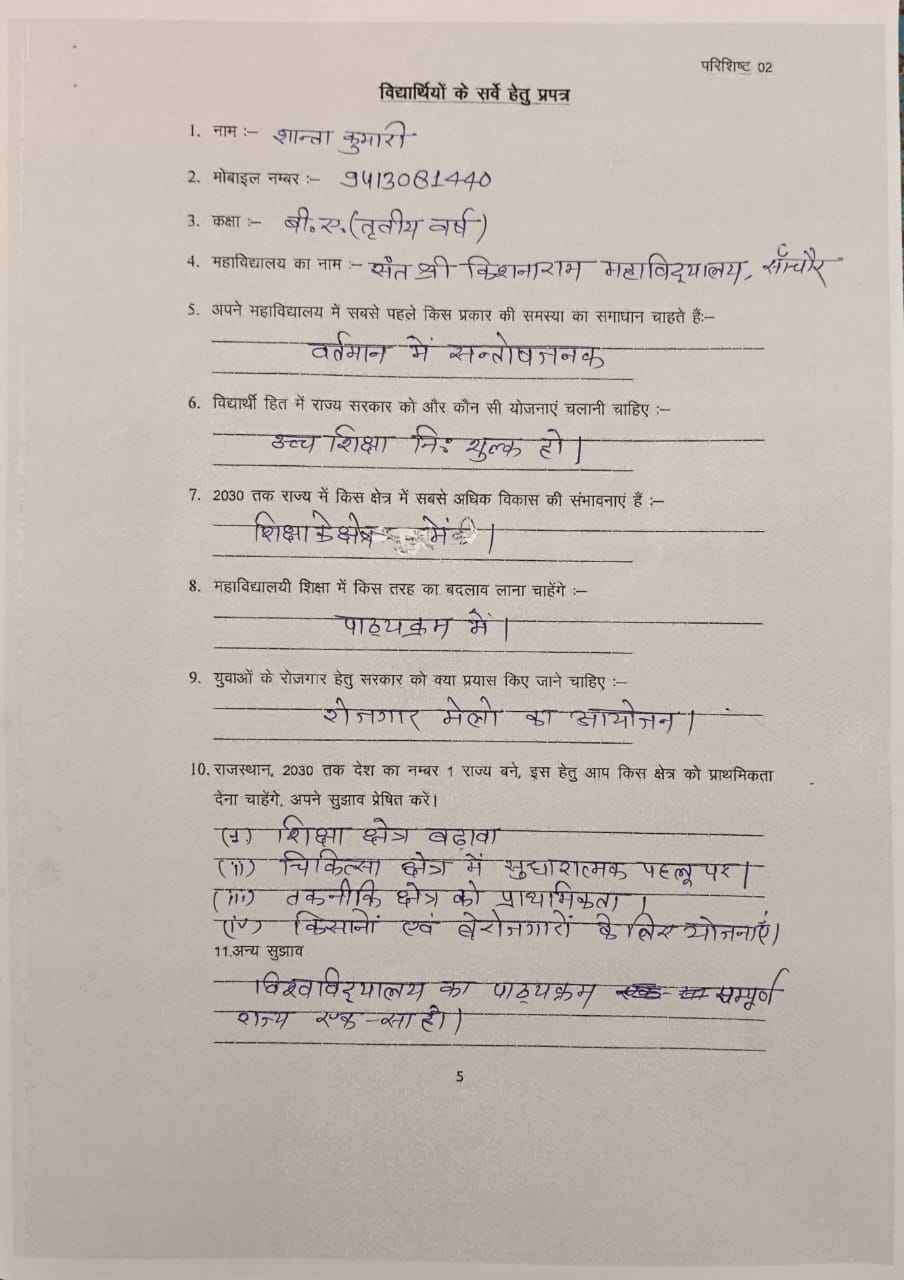 परिशिष्ट 02
विद्यार्थियों के सर्वे हेतु प्रपत्र
1. नाम :– शान्ता कुमारी
2. मोबाइल नम्बर :– 9413081440
3. कक्षा :– बी.ए.(तृतीय वर्ष)
4. महाविद्यालय का नाम :– संत श्री किशनाराम महाविद्यालय, साँचौर
5. अपने महाविद्यालय में सबसे पहले किस प्रकार की समस्या का समाधान चाहते हैः–
वर्तमान में सन्तोषजनक
6. विद्यार्थी हित में राज्य सरकार को और कौन सी योजनाएं चलानी चाहिए :–
उच्च शिक्षा निः शुल्क हो।
7. 2030 तक राज्य में किस क्षेत्र में सबसे अधिक विकास की संभावनाएं हैं :–
शिक्षा के क्षेत्र में।
8. महाविद्यालयी शिक्षा में किस तरह का बदलाव लाना चाहेंगे :–
पाठ्यक्रम में।
9. युवाओं के रोजगार हेतु सरकार को क्या प्रयास किए जाने चाहिए :–
रोजगार मेलो का आयोजन।
10. राजस्थान, 2030 तक देश का नम्बर 1 राज्य बने, इस हेतु आप किस क्षेत्र को प्राथमिकता
देना चाहेंगे, अपने सुझाव प्रेषित करें।
(i) शिक्षा क्षेत्र बढ़ावा
(ii) चिकित्सा क्षेत्र में सुधारात्मक पहलू पर।
(iii) तकनीकि क्षेत्र को प्राथमिकता।
(iv) किसानों एवं बेरोजगारों के लिए योजनाएं।
11. अन्य सुझाव
विश्वविद्यालय का पाठ्यक्रम सम्पूर्ण
राज्य एक-सा हो।
5